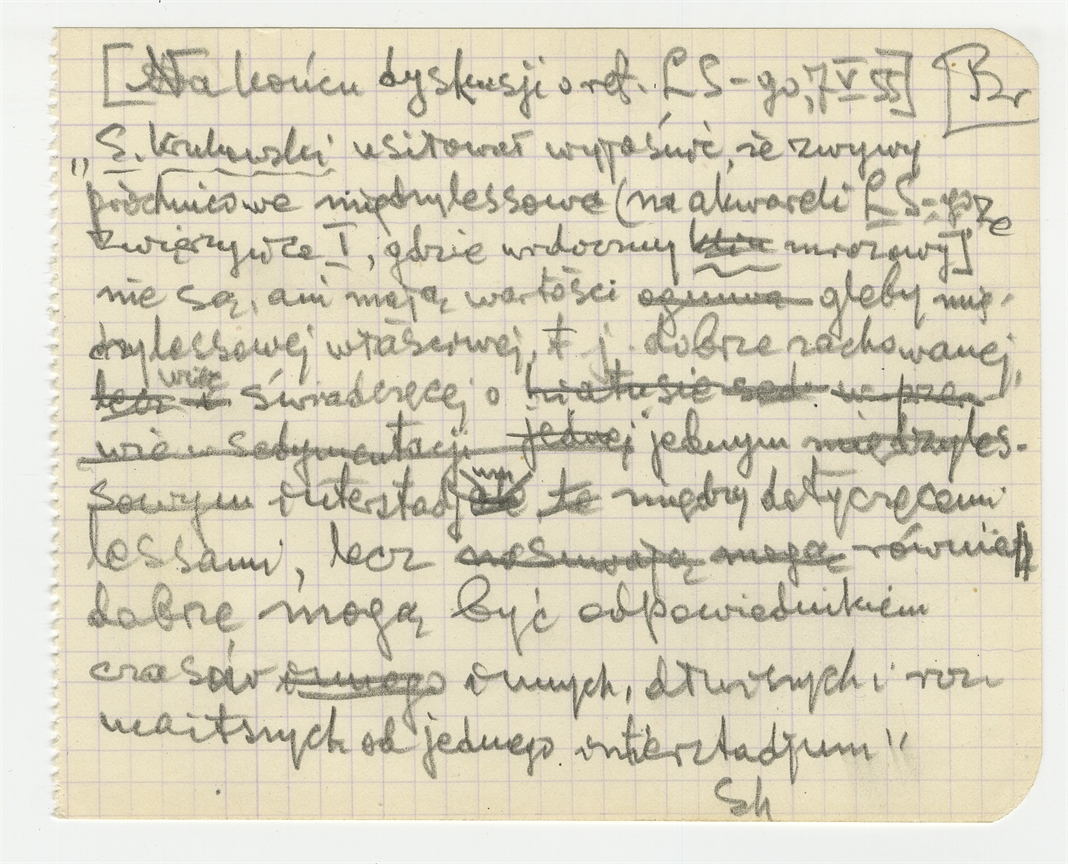 [Na końcu dyskusji o ref. LS-go, 7 V 55] Br
„S. Krukowski usiłował wyjaśnić, że zwywy
próchnicowe międzylessowe (na akwareli LS-go ze
Zwierzyńca I, gdzie widoczny klin mrozowy]
nie są, ani mają wartości ogniwa gleby mię-
dzylessowej właściwej, t. j. dobrze zachowanej,
lecz i więc świadczącej o hiatusie sed. w prza
wie w sedymentacji jednej jednym międzyles-
sowym interstadjum, te między dotyczącemi
lessami, lecz mogą równie
dobrze mogą być odpowiednikiem
czasów innego innych, dłuższych i roz
maitszych od jednego interstadjum"
Sk